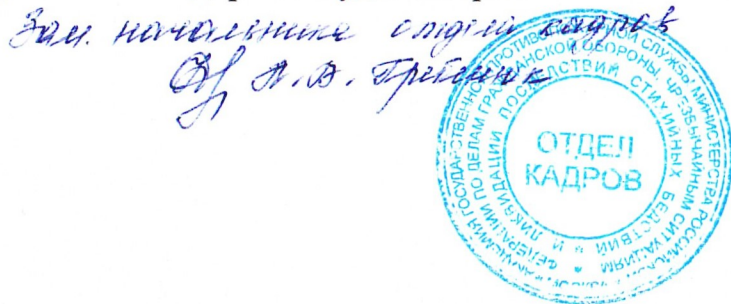 Зам. начальника отдела кадров
А. В.
АКАДЕМИЯ ГОСУДАРСТВЕННОЙ ПРОТИВОПОЖАРНОЙ СЛУЖБЫ МИНИСТЕРСТВА РОССИЙСКОЙ
ФЕДЕРАЦИИ ПО ДЕЛАМ ГРАЖДАНСКОЙ ОБОРОНЫ, ЧРЕЗВЫЧАЙНЫМ СИТУАЦИЯМ
И ЛИКВИДАЦИИ ПОСЛЕДСТВИЙ СТИХИЙНЫХ БЕДСТВИЙ
ОТДЕЛ
КАДРОВ